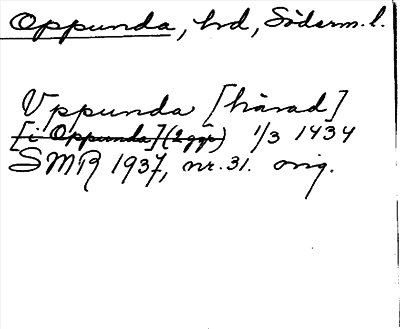 Oppunda, hd, Söderm. l.
Vppunda [härad]
[i Oppunda] (2 ggr) 1/3 1434
SMR 1937, nr. 31. orig.